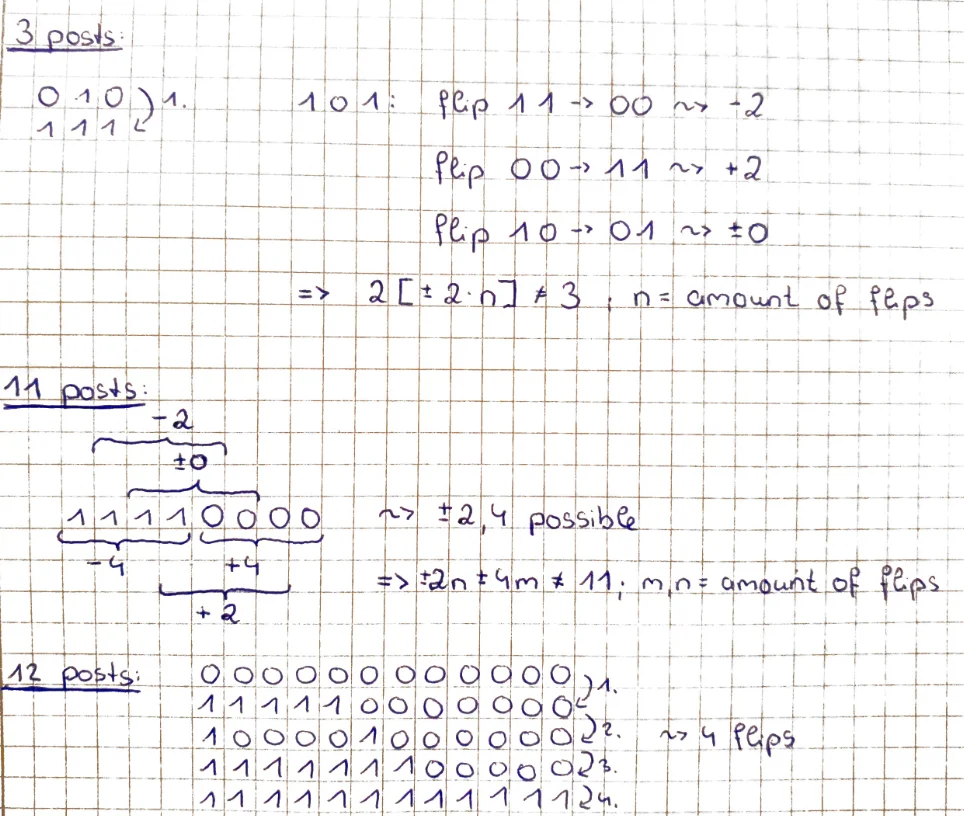 3 posts:
0 1 0 ) 1.
1 1 1
1 0 1: flip 1 1 -> 00 ~> -2
flip 00 -> 11 ~> +2
flip 10 -> 01 ~> ±0
=> 2 [± 2·n] ≠ 3 , n = amount of flips
11 posts:
-2
±0
1 1 1 1 0 0 0 0 ~> ±2,4 possible
-4 +4 => ±2n ± 4m ≠ 11; m,n = amount of flips
+2
12 posts: 0 0 0 0 0 0 0 0 0 0 0 0 1.
1 1 1 1 1 0 0 0 0 0 0 0
1 0 0 0 0 1 0 0 0 0 0 0 2. ~> 4 flips
1 1 1 1 1 1 1 0 0 0 0 0 3.
1 1 1 1 1 1 1 1 1 1 1 1 4.